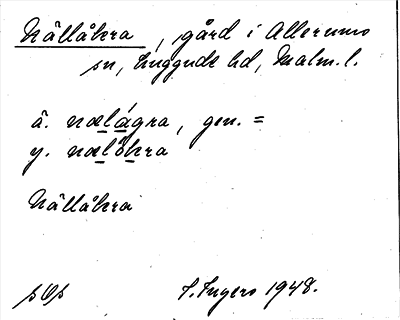 Nällåkra, gård i Allerums
sn, Luggude hd, Malm. l.
ä. nælágra, gen. =
y. nælåkra
Nällåkra
sOs I. Ingers 1948.